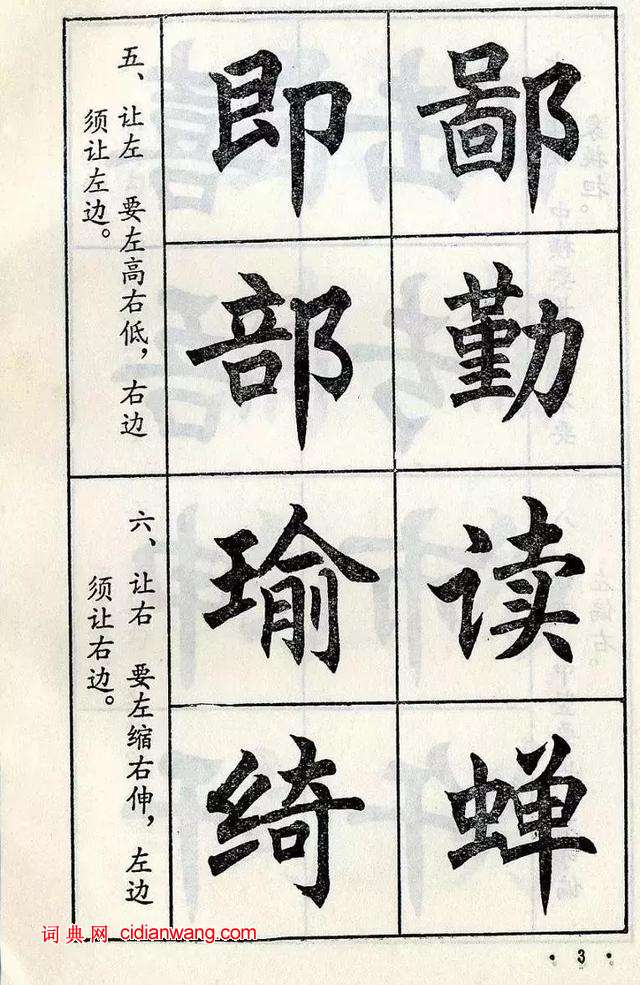 五、让左 要左高右低，右边
须让左边。
即 鄙
部 勤
六、让右 要左缩右伸，左边
须让右边。
瑜 读
绮 蝉
词典网 cidianwang.com
· 3 ·